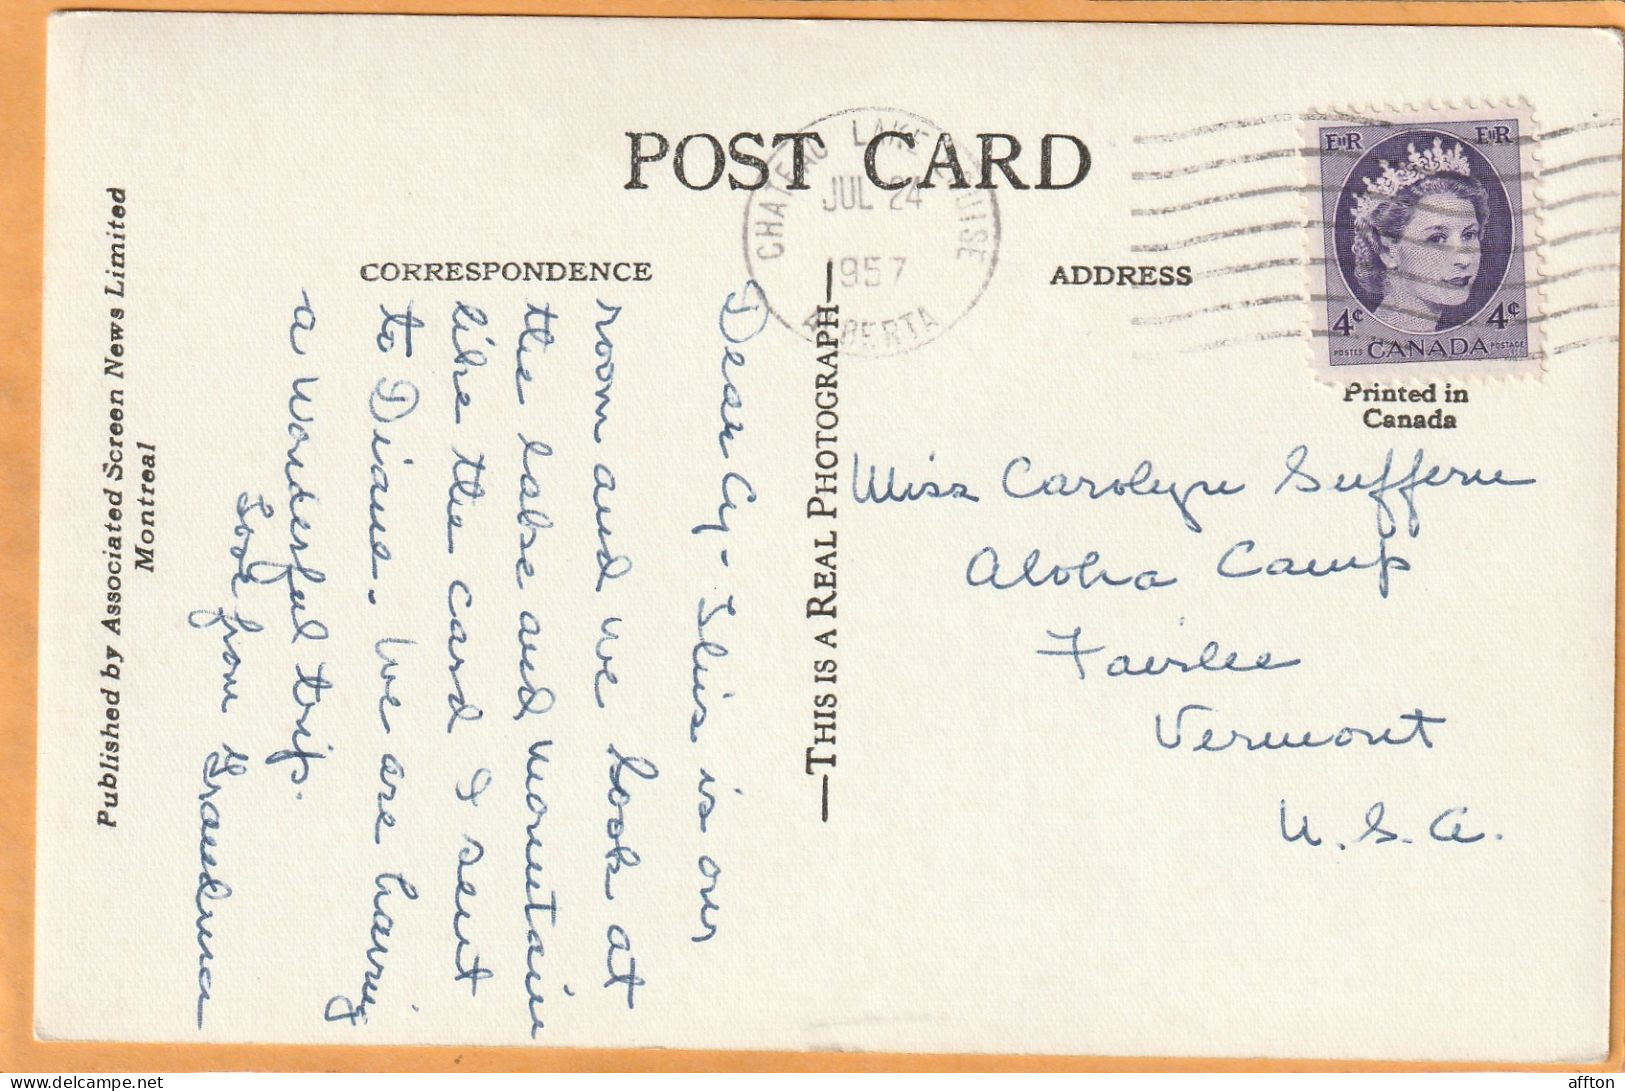 POST CARD
CHATEAU LAKE LOUISE
JUL 24
1957
ALBERTA
EIIR
EIIR
4¢
4¢
POSTES CANADA POSTAGE
Printed in
Canada
CORRESPONDENCE
ADDRESS
Published by Associated Screen News Limited
Montreal
—THIS IS A REAL PHOTOGRAPH—
Dear Cy- This is our
room and we look at
the lake and mountain
like the card I sent
to Diane. We are having
a wonderful trip.
Love from Grandma
Miss Carolyn Suffern
Aloha Camp
Fairlee
Vermont
U.S.A.
affton